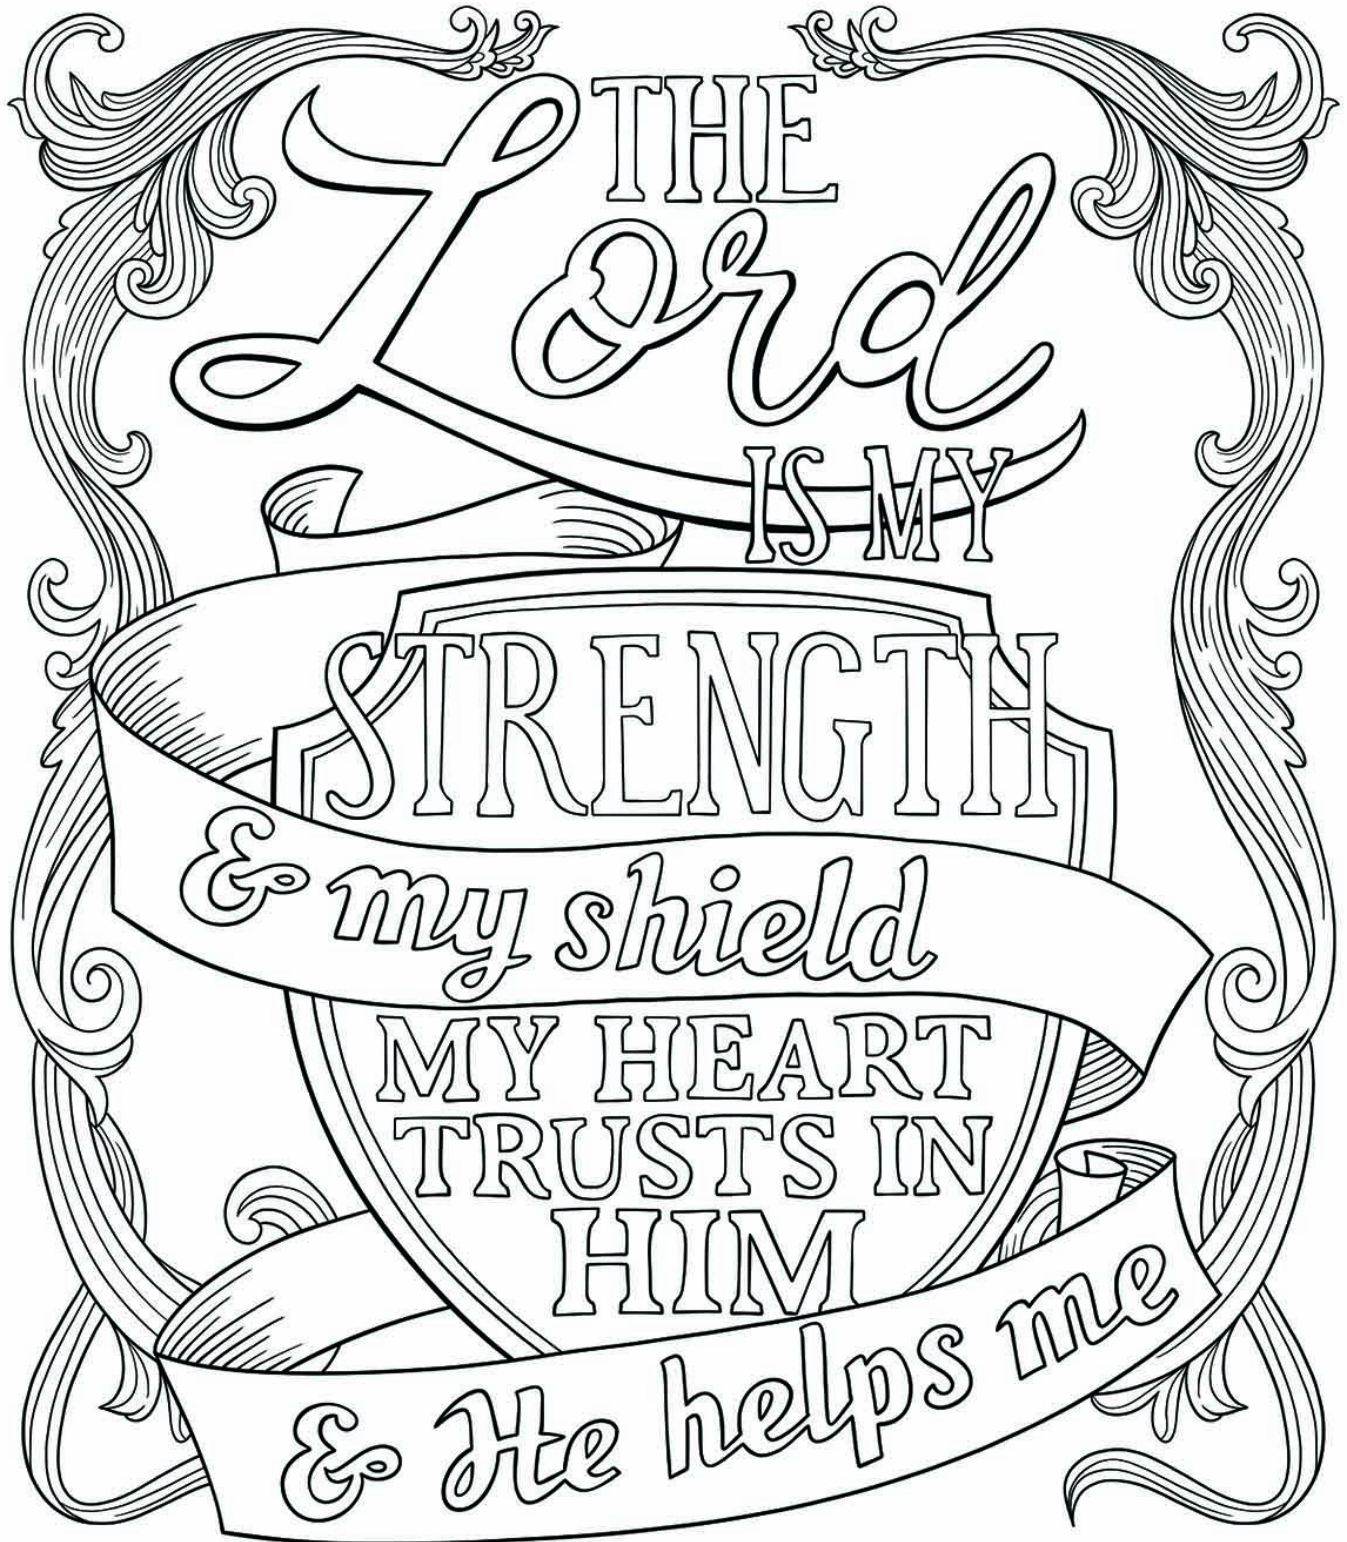 THE
Lord
IS MY
STRENGTH
& my shield
MY HEART
TRUSTS IN
HIM
& He helps me